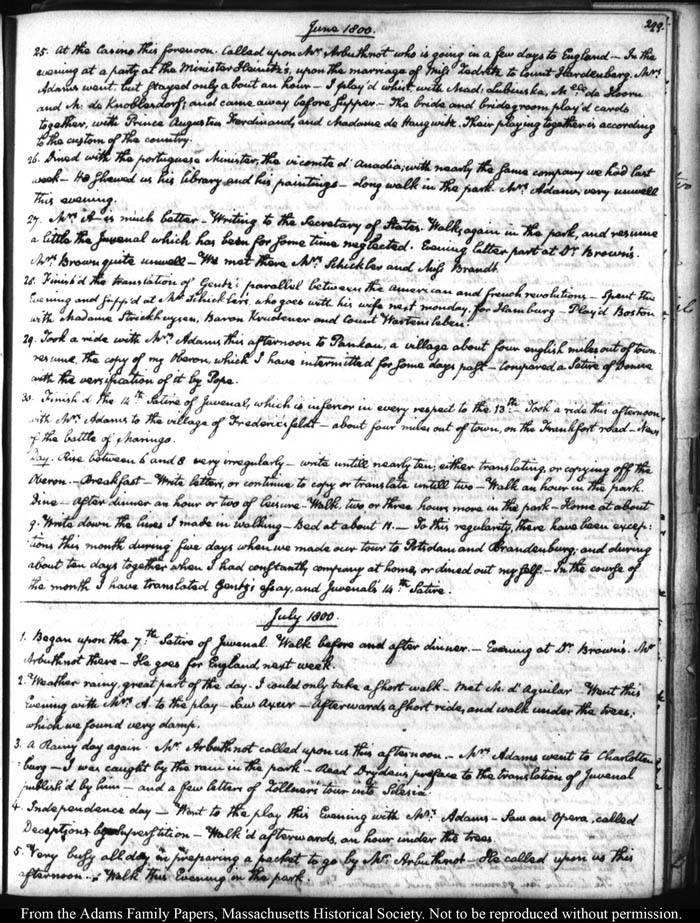 June 1800.
299.
25. At the Casino this forenoon. Called upon Mr. Arbuthnot who is going in a few days to England — In the
evening at a party at the Minister Heinitz's, upon the marriage of Miss Zedtwitz to Count Hardenberg. Mrs.
Adams went, but stayed only about an hour — I play'd whist with Mad: Lubienska, Mlle. de Hoorn
and M: de Knoblesdorf; and came away before supper — The bride and bridegroom play'd cards
together, with Prince Augustus Ferdinand, and Madame de Haugwitz. Their playing together is according
to the custom of the country.
26. Dined with the portuguese Minister, the vicomte d'Anadia; with nearly the same company we had last
week — He shewed us his library and his paintings — Long walk in the park. Mrs. Adams, very unwell
this evening.
27. Mrs. A— is much better — Writing to the Secretary of State. Walk, again in the park, and resume
a little the Juvenal which has been for some time neglected. Evening latter part at Dr. Brown's.
Mrs. Brown quite unwell — We met there Mrs. Schickler and Miss Brandt.
28. Finish'd the translation of Gentz's parallel between the American and french revolutions — Spent the
Evening and supp'd at Mr. Schickler's, who goes with his wife next monday, for Hamburg — Play'd Boston
with Madame Strickhuysen, Baron Krudener and Count Wartensleben.
29. Took a ride with Mrs. Adams this afternoon to Pankau, a village about four english miles out of town.
resume, the copy of my Oberon, which I have intermitted for some days past — Compared a Satire of Donne
with the versification of it by Pope.
30. Finish'd the 14th Satire of Juvenal, which is inferior in every respect to the 13th — Took a ride this afternoon,
with Mrs. Adams to the village of Fredericsfeldt — about four miles out of town, on the Frankfort road — News
of the battle of Maringo.
Day. Rise between 6 and 8 very irregularly — write untill nearly ten, either translating, or copying off the
Oberon. — Breakfast — Write letters, or continue to copy or translate untill two — Walk an hour in the park.
Dine — After dinner an hour or two of leisure — Walk two or three hours more in the park — Home at about
9. Write down the lines I made in walking — Bed at about 11. — To this regularity, there have been excep:
:tions this month during five days when we made our tour to Potsdam and Brandenburg; and during
about ten days together when I had constantly company at home, or dined out myself. — In the course of
the month I have translated Gentz's essay, and Juvenal's 14th Satire.
July 1800.
1. Began upon the 7th Satire of Juvenal. Walk before and after dinner — Evening at Dr. Brown's. Mr.
Arbuthnot there — He goes for England next week.
2. Weather rainy, great part of the day. I could only take a short walk — Met M. d'Aguilar. Went this
Evening with Mrs. A. to the play — Saw Axur — Afterwards a short ride, and walk under the trees;
which we found very damp.
3. A Rainy day again. Mr. Arbuthnot called upon us this afternoon — Mrs. Adams went to Charlotten:
:burg — I was caught by the rain in the park — Read Dryden's preface to the translation of Juvenal
publish'd by him — and a few letters of Zöllner's tour into Silesia.
4. Independence day — Went to the play this Evening with Mrs. Adams — Saw an Opera, called
Deceptions by Superstition — Walk'd afterwards, an hour under the trees.
5. Very busy all day in preparing a packet to go by Mr. Arbuthnot — He called upon us this
afternoon. — Walk this Evening in the park.
From the Adams Family Papers, Massachusetts Historical Society. Not to be reproduced without permission.